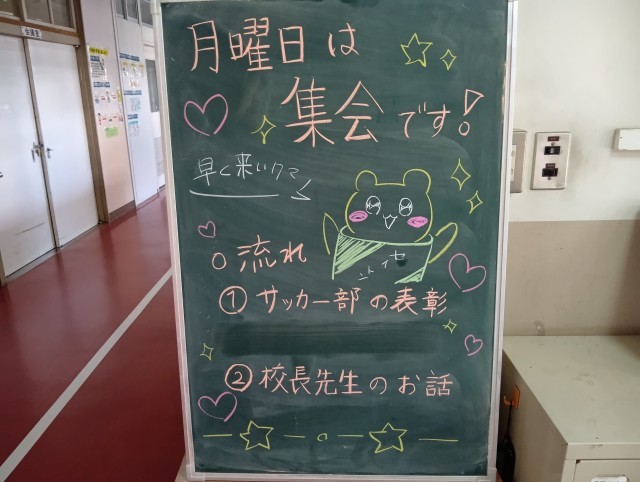 月曜日は
集会です!
早く来いクマ
○流れ
①サッカー部の表彰
②校長先生のお話